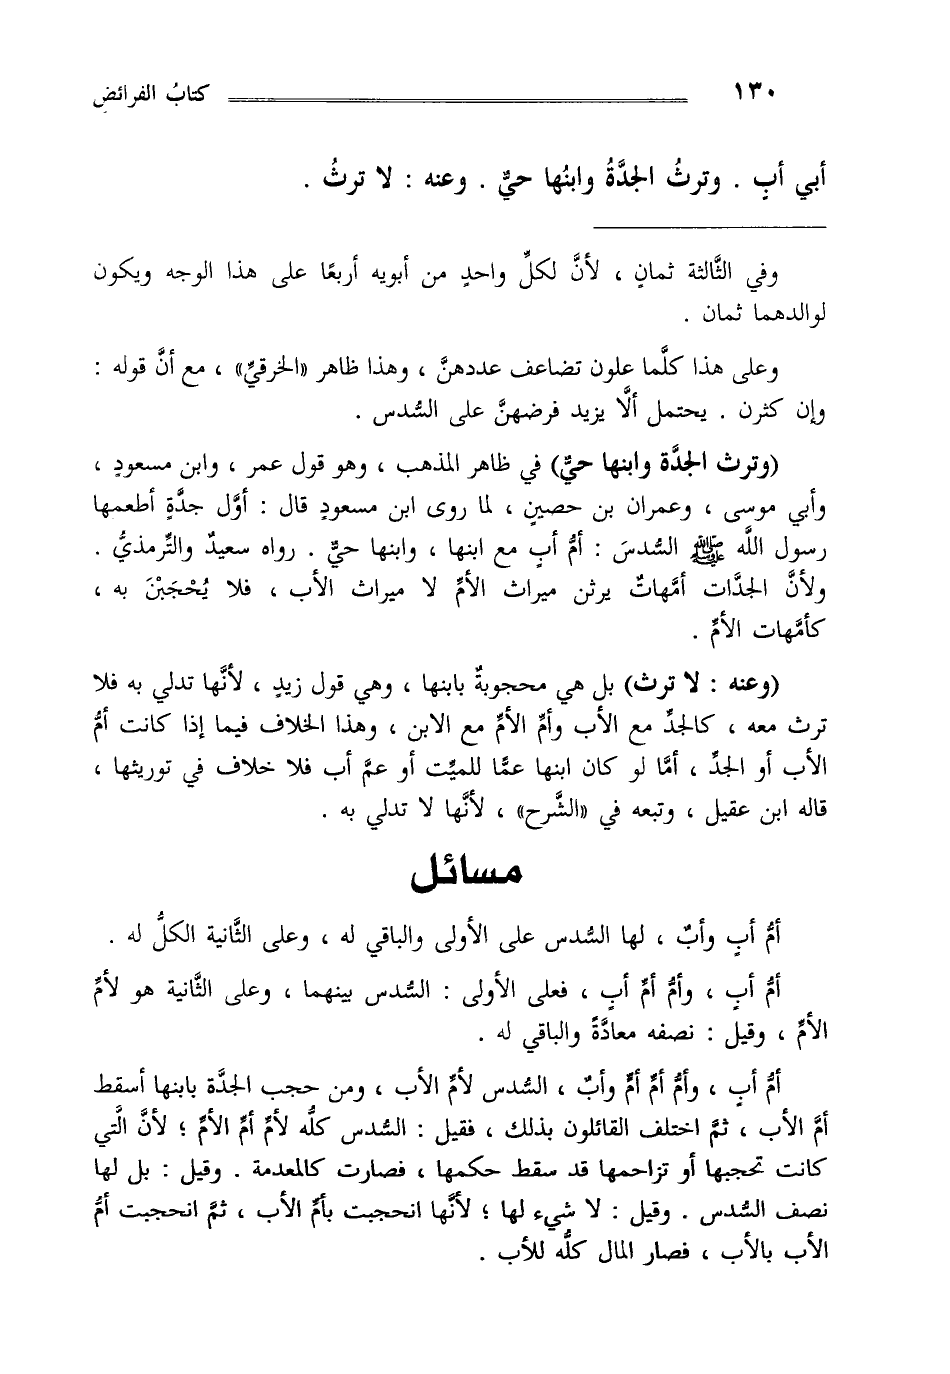 ١٣٠ كتابُ الفرائض
أبي أبٍ . وترثُ الجدَّةُ وابنُها حيٌّ . وعنه : لا ترثُ .
وفي الثَّالثة ثمانٍ ، لأنَّ لكلِّ واحدٍ من أبويه أربعًا على هذا الوجه ويكون
لوالدهما ثمان .
وعلى هذا كلَّما علون تضاعف عددهنَّ ، وهذا ظاهر «الخرقيِّ» ، مع أنَّ قوله :
وإن كثرن . يحتمل ألَّا يزيد فرضهنَّ على السُّدس .
(وترث الجدَّة وابنها حيٌّ) في ظاهر المذهب ، وهو قول عمر ، وابن مسعودٍ ،
وأبي موسى ، وعمران بن حصينٍ ، لما روى ابن مسعودٍ قال : أوَّل جدَّةٍ أطعمها
رسول اللَّه ﷺ السُّدسَ : أمُّ أبٍ مع ابنها ، وابنها حيٌّ . رواه سعيدٌ والتِّرمذيُّ .
ولأنَّ الجدَّات أمَّهاتٌ يرثن ميراث الأمِّ لا ميراث الأب ، فلا يُحْجَبْنَ به ،
كأمَّهات الأمِّ .
(وعنه : لا ترث) بل هي محجوبةٌ بابنها ، وهي قول زيدٍ ، لأنَّها تدلي به فلا
ترث معه ، كالجدِّ مع الأب وأمِّ الأمِّ مع الابن ، وهذا الخلاف فيما إذا كانت أمُّ
الأب أو الجدِّ ، أمَّا لو كان ابنها عمًّا للميِّت أو عمَّ أب فلا خلاف في توريثها ،
قاله ابن عقيل ، وتبعه في «الشَّرح» ، لأنَّها لا تدلي به .
مسائل
أمُّ أبٍ وأبٌ ، لها السُّدس على الأولى والباقي له ، وعلى الثَّانية الكلُّ له .
أمُّ أبٍ ، وأمُّ أمِّ أبٍ ، فعلى الأولى : السُّدس بينهما ، وعلى الثَّانية هو لأمِّ
الأمِّ ، وقيل : نصفه معادَّةً والباقي له .
أمُّ أبٍ ، وأمُّ أمِّ أمٍّ وأبٌ ، السُّدس لأمِّ الأب ، ومن حجب الجدَّة بابنها أسقط
أمَّ الأب ، ثمَّ اختلف القائلون بذلك ، فقيل : السُّدس كلُّه لأمِّ أمِّ الأمِّ ؛ لأنَّ الَّتي
كانت تحجبها أو تزاحمها قد سقط حكمها ، فصارت كالمعدمة . وقيل : بل لها
نصف السُّدس . وقيل : لا شيء لها ؛ لأنَّها انحجبت بأمِّ الأب ، ثمَّ انحجبت أمُّ
الأب بالأب ، فصار المال كلُّه للأب .